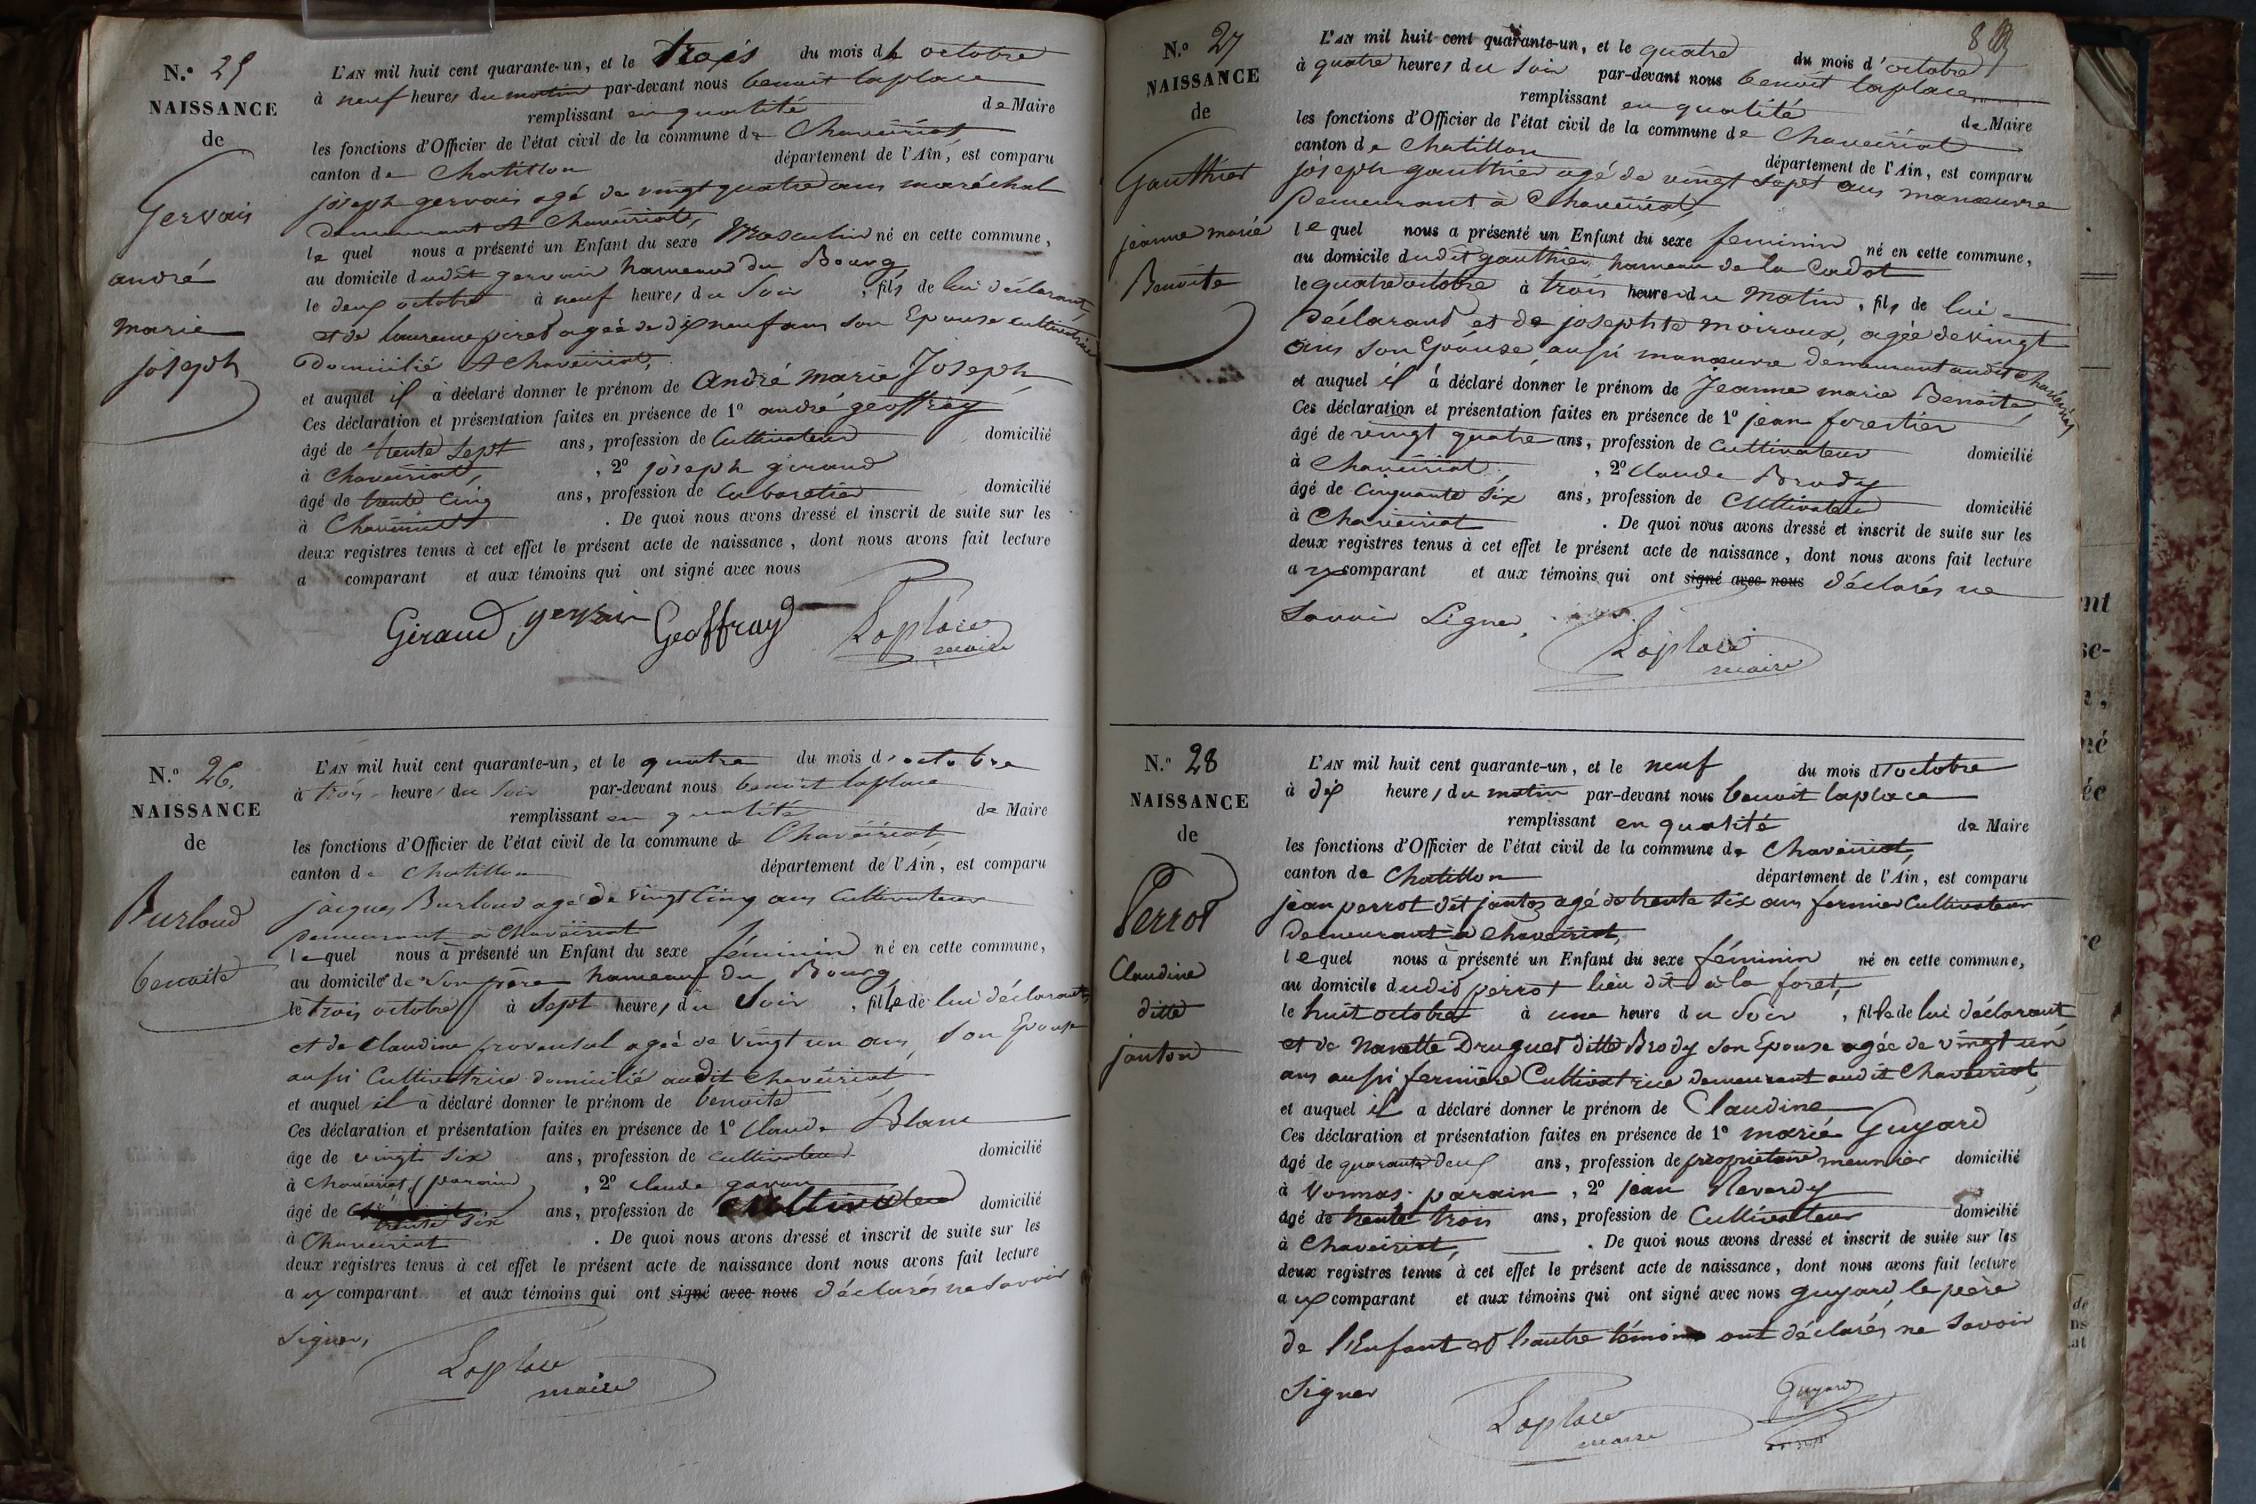 N.o 25
NAISSANCE
de
Gervais
andré
marie
joseph
L'AN mil huit cent quarante-un, et le trois du mois de octobre
à neuf heures du matin par-devant nous benoit laplace
remplissant en qualité de Maire
les fonctions d'Officier de l'état civil de la commune de Chaveiriat
canton de Chatillon département de l'Ain, est comparu
joseph gervais agé de vingt quatre ans maréchal
demeurant A Chaveiriat,
le quel nous a présenté un Enfant du sexe Masculin né en cette commune,
au domicile dudit gervais hameau du Bourg
le deux octobre à neuf heures du Soir, fils de lui déclarant
et de laurence piret agée de dix neuf ans son Epouse cultivatrice
Domicilié A Chaveiriat,
et auquel il a déclaré donner le prénom de André Marie Joseph
Ces déclaration et présentation faites en présence de 1o andré geoffray
âgé de trente Sept ans, profession de Cultivateur domicilié
à Chaveiriat, , 2o joseph giraud
âgé de trente Cinq ans, profession de Cabaretier domicilié
à Chaveiriat . De quoi nous avons dressé et inscrit de suite sur les
deux registres tenus à cet effet le présent acte de naissance, dont nous avons fait lecture
a comparant et aux témoins qui ont signé avec nous
Giraud gervais Geoffray Laplace
maire
N.o 26.
NAISSANCE
de
Burloud
benoite
L'AN mil huit cent quarante-un, et le quatre du mois d'octobre
à trois heures du Soir par-devant nous benoit laplace
remplissant en qualité de Maire
les fonctions d'Officier de l'état civil de la commune de Chaveiriat
canton de Chatillon département de l'Ain, est comparu
jacques Burloud agé de vingt Cinq ans Cultivateur
Demeurant a Chaveiriat
lequel nous a présenté un Enfant du sexe féminin né en cette commune,
au domicile de Son père hameau du Bourg,
le trois octobre à Sept heures du Soir, fille de lui déclarant
et de Claudine provensal agée de vingt un ans, Son Epouse
aussi Cultivatrice domicilié audit Chaveiriat
et auquel il a déclaré donner le prénom de benoite
Ces déclaration et présentation faites en présence de 1o Claude Blanc
âgé de vingt Six ans, profession de Cultivateur domicilié
à Chaveiriat, parain, , 2o claude
âgé de trente Six ans, profession de Cultivateur domicilié
à Chaveiriat . De quoi nous avons dressé et inscrit de suite sur les
deux registres tenus à cet effet le présent acte de naissance dont nous avons fait lecture
aux comparant et aux témoins qui ont signé avec nous déclarés ne Savoir
Signer,
Laplace
maire
N.o 27
NAISSANCE
de
Gauthier
jeanne marie
Benoite
L'AN mil huit cent quarante-un, et le quatre du mois d'octobre
à quatre heures du Soir par-devant nous benoit laplace
remplissant en qualité de Maire
les fonctions d'Officier de l'état civil de la commune de Chaveiriat
canton de Chatillon département de l'Ain, est comparu
joseph gauthier agé de vingt Sept ans manœuvre
Demeurant à Chaveiriat,
lequel nous a présenté un Enfant du sexe féminin né en cette commune,
au domicile dudit gauthier hameau de la
le quatre octobre à trois heures du Matin, fils de lui
Déclarant et de josephte moiroux, agée de vingt
ans Son Epouse, aussi manœuvre demeurant audit Chaveiriat
et auquel il a déclaré donner le prénom de Jeanne marie Benoite,
Ces déclaration et présentation faites en présence de 1o jean forestier
âgé de vingt quatre ans, profession de Cultivateur domicilié
à Chaveiriat, , 2o claude Brody
âgé de Cinquante Six ans, profession de Cultivateur domicilié
à Chaveiriat . De quoi nous avons dressé et inscrit de suite sur les
deux registres tenus à cet effet le présent acte de naissance, dont nous avons fait lecture
aux comparant et aux témoins qui ont signé avec nous déclarés ne
Savoir Signer,
Laplace
maire
N.o 28
NAISSANCE
de
Perrot
Claudine
ditte
janton
L'AN mil huit cent quarante-un, et le neuf du mois d'octobre
à dix heures du matin par-devant nous benoit laplace
remplissant en qualité de Maire
les fonctions d'Officier de l'état civil de la commune de Chaveiriat,
canton de Chatillon département de l'Ain, est comparu
jean perrot dit janton agé de trente Six ans fermier Cultivateur
demeurant a Chaveiriat,
lequel nous a présenté un Enfant du sexe féminin né en cette commune,
au domicile dudit perrot lieu dit à la foret,
le huit octobre à une heure du Soir, fille de lui déclarant
et de Nanette Druguet ditte Brody Son Epouse agée de vingt un
ans aussi fermière Cultivatrice demeurant audit Chaveiriat
et auquel il a déclaré donner le prénom de Claudine
Ces déclaration et présentation faites en présence de 1o marie Guyard
âgé de quarante deux ans, profession de propriétaire meunier domicilié
à Vonnas parain, 2o jean Revardy
âgé de trente trois ans, profession de Cultivateur domicilié
à Chaveiriat, . De quoi nous avons dressé et inscrit de suite sur les
deux registres tenus à cet effet le présent acte de naissance, dont nous avons fait lecture
aux comparant et aux témoins qui ont signé avec nous guyard, le père
de l'Enfant et l'autre témoin ont déclarés ne Savoir
Signer
Laplace
maire
Guyard